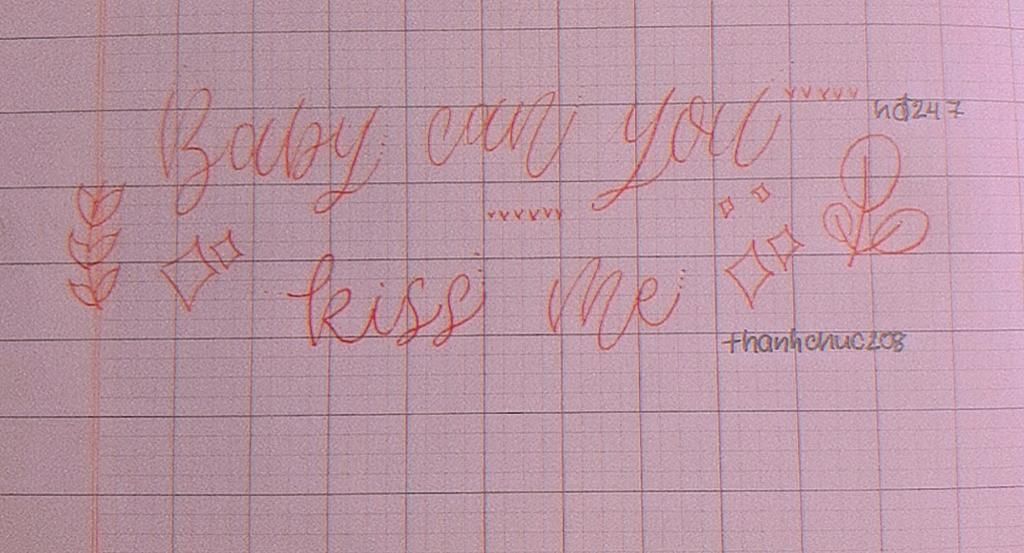 Baby can you
hđ247
kiss me
thanhchuc208